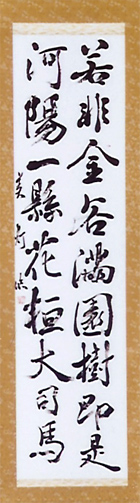 若非金谷滿園樹即是
河陽一縣花桓大司馬